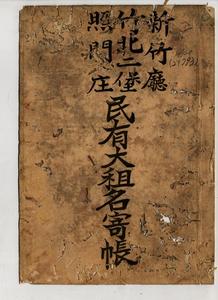 新竹廳
竹北二堡
照門庄
民有大租名寄帳